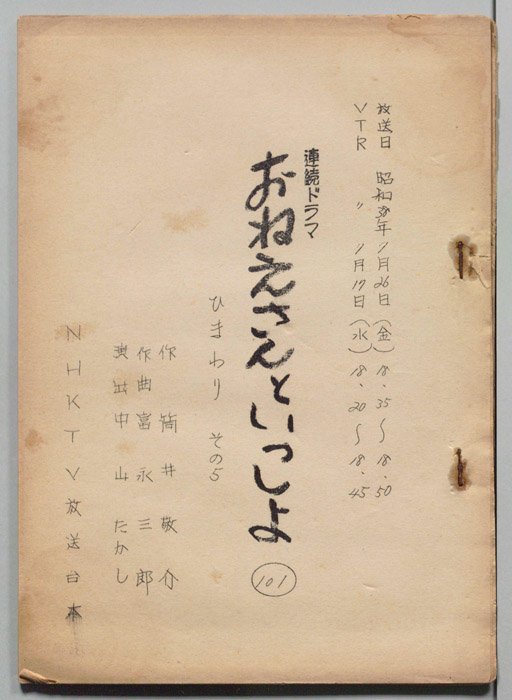 放送日 昭和37年1月26日(金) 18.35〜18.50
VTR 〃 1月17日(水) 18.20〜18.45
連続ドラマ
おねえさんといっしょ 101
ひまわり その5
作 筒井敬介
作曲 富永三郎
演出 中山たかし
NHKTV放送台本